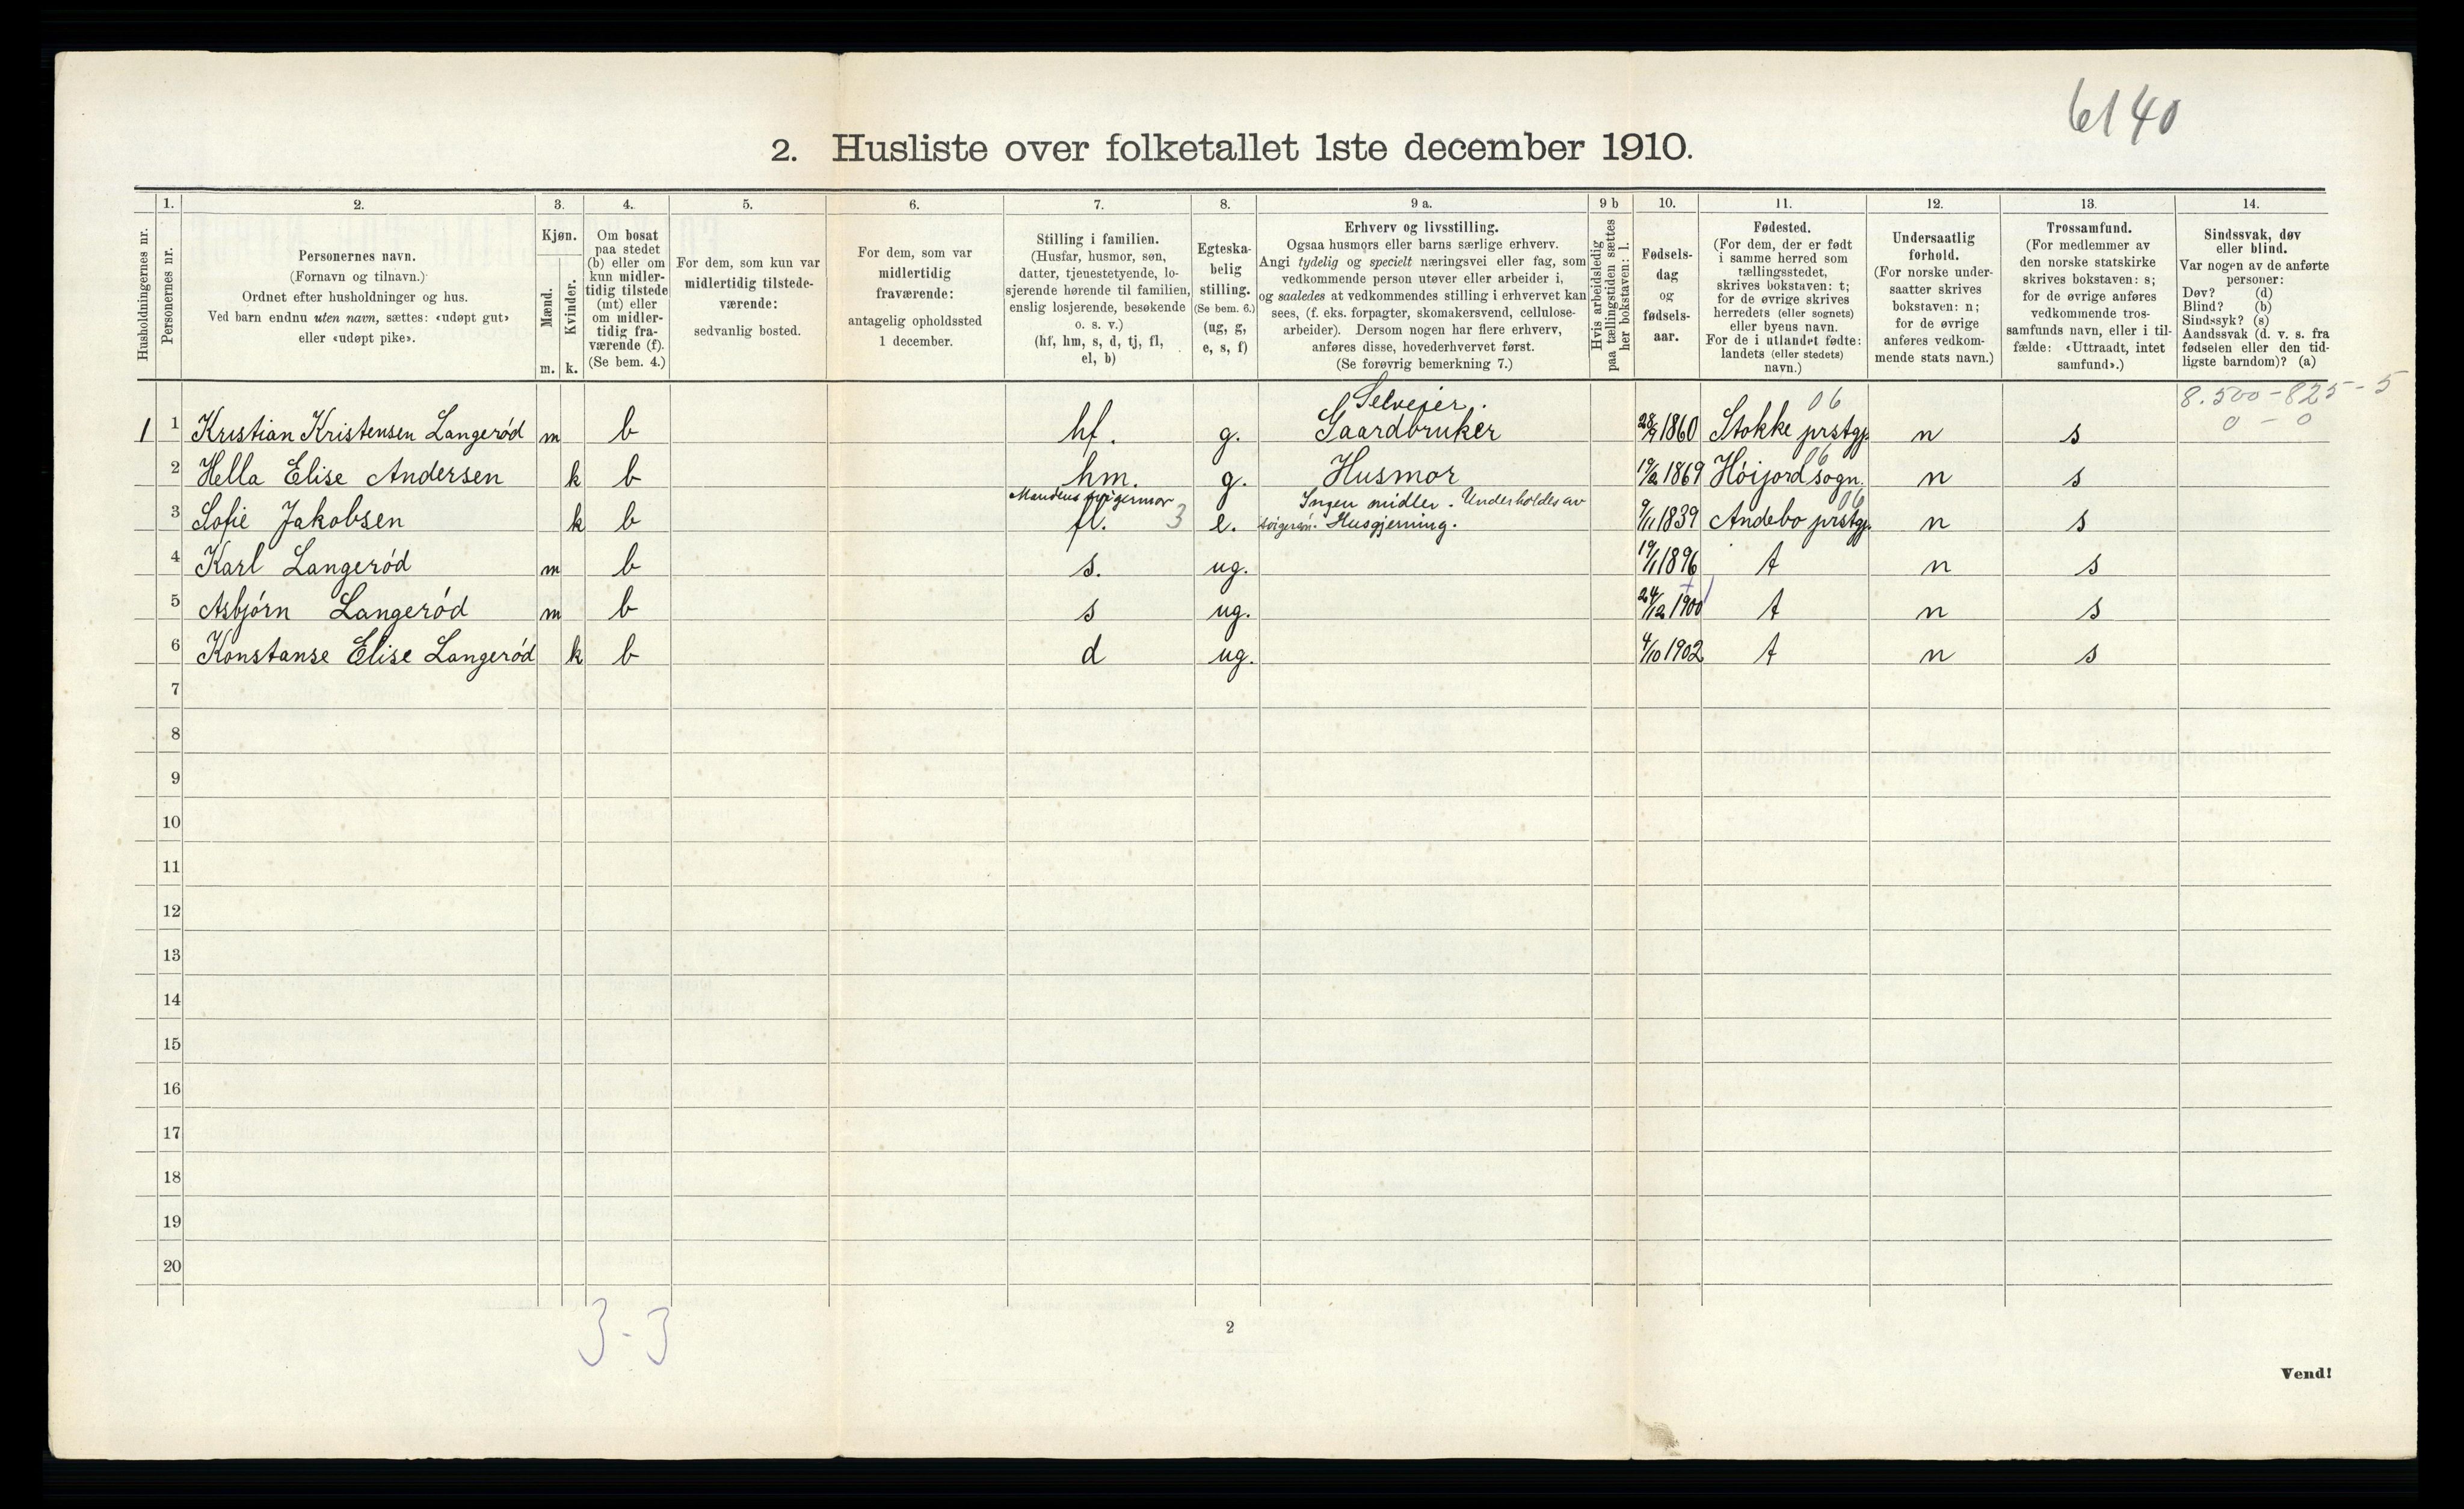 6140
2. Husliste over folketallet 1ste december 1910.
Husholdningernes nr.
1.
Personernes nr.
2.
Personernes navn.
(Fornavn og tilnavn.)
Ordnet efter husholdninger og hus.
Ved barn endnu uten navn, sættes: «udøpt gut»
eller «udøpt pike».
3.
Kjøn.
Mænd.
Kvinder.
m. k.
4.
Om bosat
paa stedet
(b) eller om
kun midler-
tidig tilstede
(mt) eller
om midler-
tidig fra-
værende (f).
(Se bem. 4.)
5.
For dem, som kun var
midlertidig tilstede-
værende:
sedvanlig bosted.
6.
For dem, som var
midlertidig
fraværende:
antagelig opholdssted
1 december.
7.
Stilling i familien.
(Husfar, husmor, søn,
datter, tjenestetyende, lo-
sjerende hørende til familien,
enslig losjerende, besøkende
o. s. v.)
(hf, hm, s, d, tj, fl,
el, b)
8.
Egteska-
belig
stilling.
(Se bem. 6.)
(ug, g,
e, s, f)
9 a.
Erhverv og livsstilling.
Ogsaa husmors eller barns særlige erhverv.
Angi tydelig og specielt næringsvei eller fag, som
vedkommende person utøver eller arbeider i,
og saaledes at vedkommendes stilling i erhvervet kan
sees, (f. eks. forpagter, skomakersvend, cellulose-
arbeider). Dersom nogen har flere erhverv,
anføres disse, hovederhvervet først.
(Se forøvrig bemerkning 7.)
9 b
Hvis arbeidsledig
paa tællingstiden sættes
her bokstaven: l.
10.
Fødsels-
dag
og
fødsels-
aar.
11.
Fødested.
(For dem, der er født
i samme herred som
tællingsstedet,
skrives bokstaven: t;
for de øvrige skrives
herredets (eller sognets)
eller byens navn.
For de i utlandet fødte:
landets (eller stedets)
navn.)
12.
Undersaatlig
forhold.
(For norske under-
saatter skrives
bokstaven: n;
for de øvrige
anføres vedkom-
mende stats navn.)
13.
Trossamfund.
(For medlemmer av
den norske statskirke
skrives bokstaven: s;
for de øvrige anføres
vedkommende tros-
samfunds navn, eller i til-
fælde: «Uttraadt, intet
samfund».)
14.
Sindssvak, døv
eller blind.
Var nogen av de anførte
personer:
Døv? (d)
Blind? (b)
Sindssyk? (s)
Aandssvak (d. v. s. fra
fødselen eller den tid-
ligste barndom)? (a)
Selveier. 06 8.500-825-5
1 1 Kristian Kristensen Langerød m b hf. g. Gaardbruker 28/9 1860 Stokke prstgj. n s 0 - 0
06
2 Hella Elise Andersen k b hm. g. Husmor 19/2 1869 Høijord sogn. n s
Mandens svigermor Ingen midler. Underholdes av 06
3 Sofie Jakobsen k b fl. 3 e. svigersøn. Husgjerning. 9/11 1839 Andebo prstgj. n s
4 Karl Langerød m b s. ug. 19/1 1896 t n s
5 Asbjørn Langerød m b s ug. 24/12 1900 t n s
6 Konstanse Elise Langerød k b d ug. 4/10 1902 t n s
7
8
9
10
11
12
13
14
15
16
17
18
19
20
3-3
2
Vend!